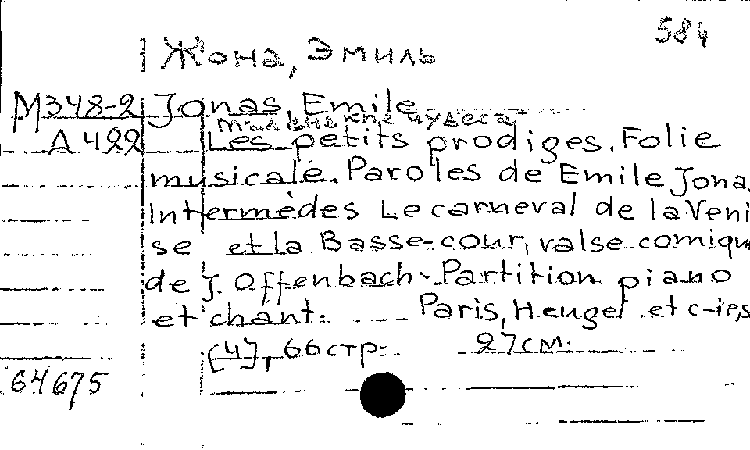 584
Жона, Эмиль
M348-2 Jonas, Emile
Маленькие чудеса
A 422 Les petits prodiges. Folie
musicale. Paroles de Emile Jona
Intermèdes Le carneval de la Veni
se et la Basse-cour, valse comiqu
de J. Offenbach. Partition piano
et chant. Paris, Heugel et c-ie, s
[4], 66 стр. 27 см.
64675